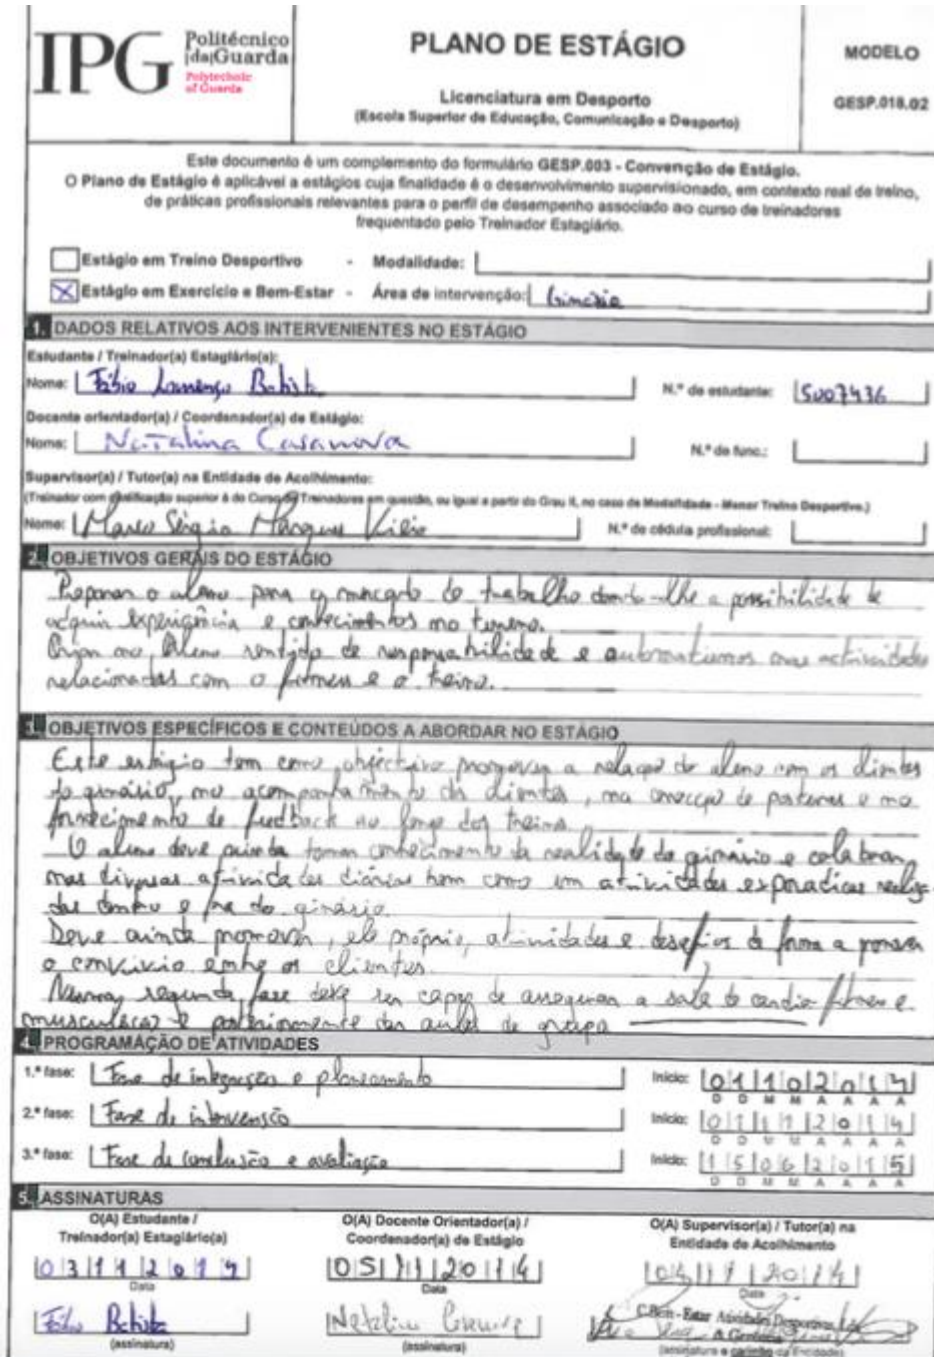 IPG Politécnico
|da|Guarda
Polytechnic
of Guarda
PLANO DE ESTÁGIO
Licenciatura em Desporto
(Escola Superior de Educação, Comunicação e Desporto)
MODELO
GESP.018.02
Este documento é um complemento do formulário GESP.003 - Convenção de Estágio.
O Plano de Estágio é aplicável a estágios cuja finalidade é o desenvolvimento supervisionado, em contexto real de treino,
de práticas profissionais relevantes para o perfil de desempenho associado ao curso de treinadores
frequentado pelo Treinador Estagiário.
Estágio em Treino Desportivo - Modalidade:
X Estágio em Exercício e Bem-Estar - Área de intervenção: Ginásio
1. DADOS RELATIVOS AOS INTERVENIENTES NO ESTÁGIO
Estudante / Treinador(a) Estagiário(a):
Nome: Fábio Lourenço Batista N.º de estudante: 5007436
Docente orientador(a) / Coordenador(a) de Estágio:
Nome: Natalina Casanova N.º de func.:
Supervisor(a) / Tutor(a) na Entidade de Acolhimento:
(Treinador com qualificação superior à do Curso de Treinadores em questão, ou igual a partir do Grau II, no caso de Modalidade - Menor Treino Desportivo.)
Nome: Marco Sérgio Marques N.º de cédula profissional:
2. OBJETIVOS GERAIS DO ESTÁGIO
Preparar o aluno para o mercado de trabalho dando-lhe a possibilidade de
adquirir experiência e conhecimentos no terreno.
Criar no Aluno sentido de responsabilidade e automatismos nas actividades
relacionadas com o fitness e o treino.
3. OBJETIVOS ESPECÍFICOS E CONTEÚDOS A ABORDAR NO ESTÁGIO
Este estágio tem como objectivo promover a relação do aluno com os clientes
do ginásio, no acompanhamento dos clientes, na correcção de posturas e no
fornecimento de feedback ao longo dos treinos.
O aluno deve ainda tomar conhecimento da realidade do ginásio e colaborar
nas diversas atividades diárias bem como em atividades esporadicas realiza
das dentro e fora do ginásio.
Deve ainda promover, ele próprio, atividades e desafios de forma a
o convivio entre os clientes.
Numa segunda fase deve ser capaz de assegurar a sala de cardio fitness e
musculação e posteriormente dar aulas de grupo
4. PROGRAMAÇÃO DE ATIVIDADES
1.ª fase: Fase de integração e planeamento Início: 01 10 2014
D D M M A A A A
2.ª fase: Fase de intervenção Início: 01 11 2014
D D M M A A A A
3.ª fase: Fase de conclusão e avaliação Início: 15 06 2015
D D M M A A A A
5. ASSINATURAS
O(A) Estudante / O(A) Docente Orientador(a) / O(A) Supervisor(a) / Tutor(a) na
Treinador(a) Estagiário(a) Coordenador(a) de Estágio Entidade de Acolhimento
03 11 2014 05 11 2014 11 2014
Data Data Data
Fábio Batista C.Bem - Estar Atividades Desportivas, Lda
A Gerência
(assinatura) (assinatura) (assinatura e carimbo da Entidade)